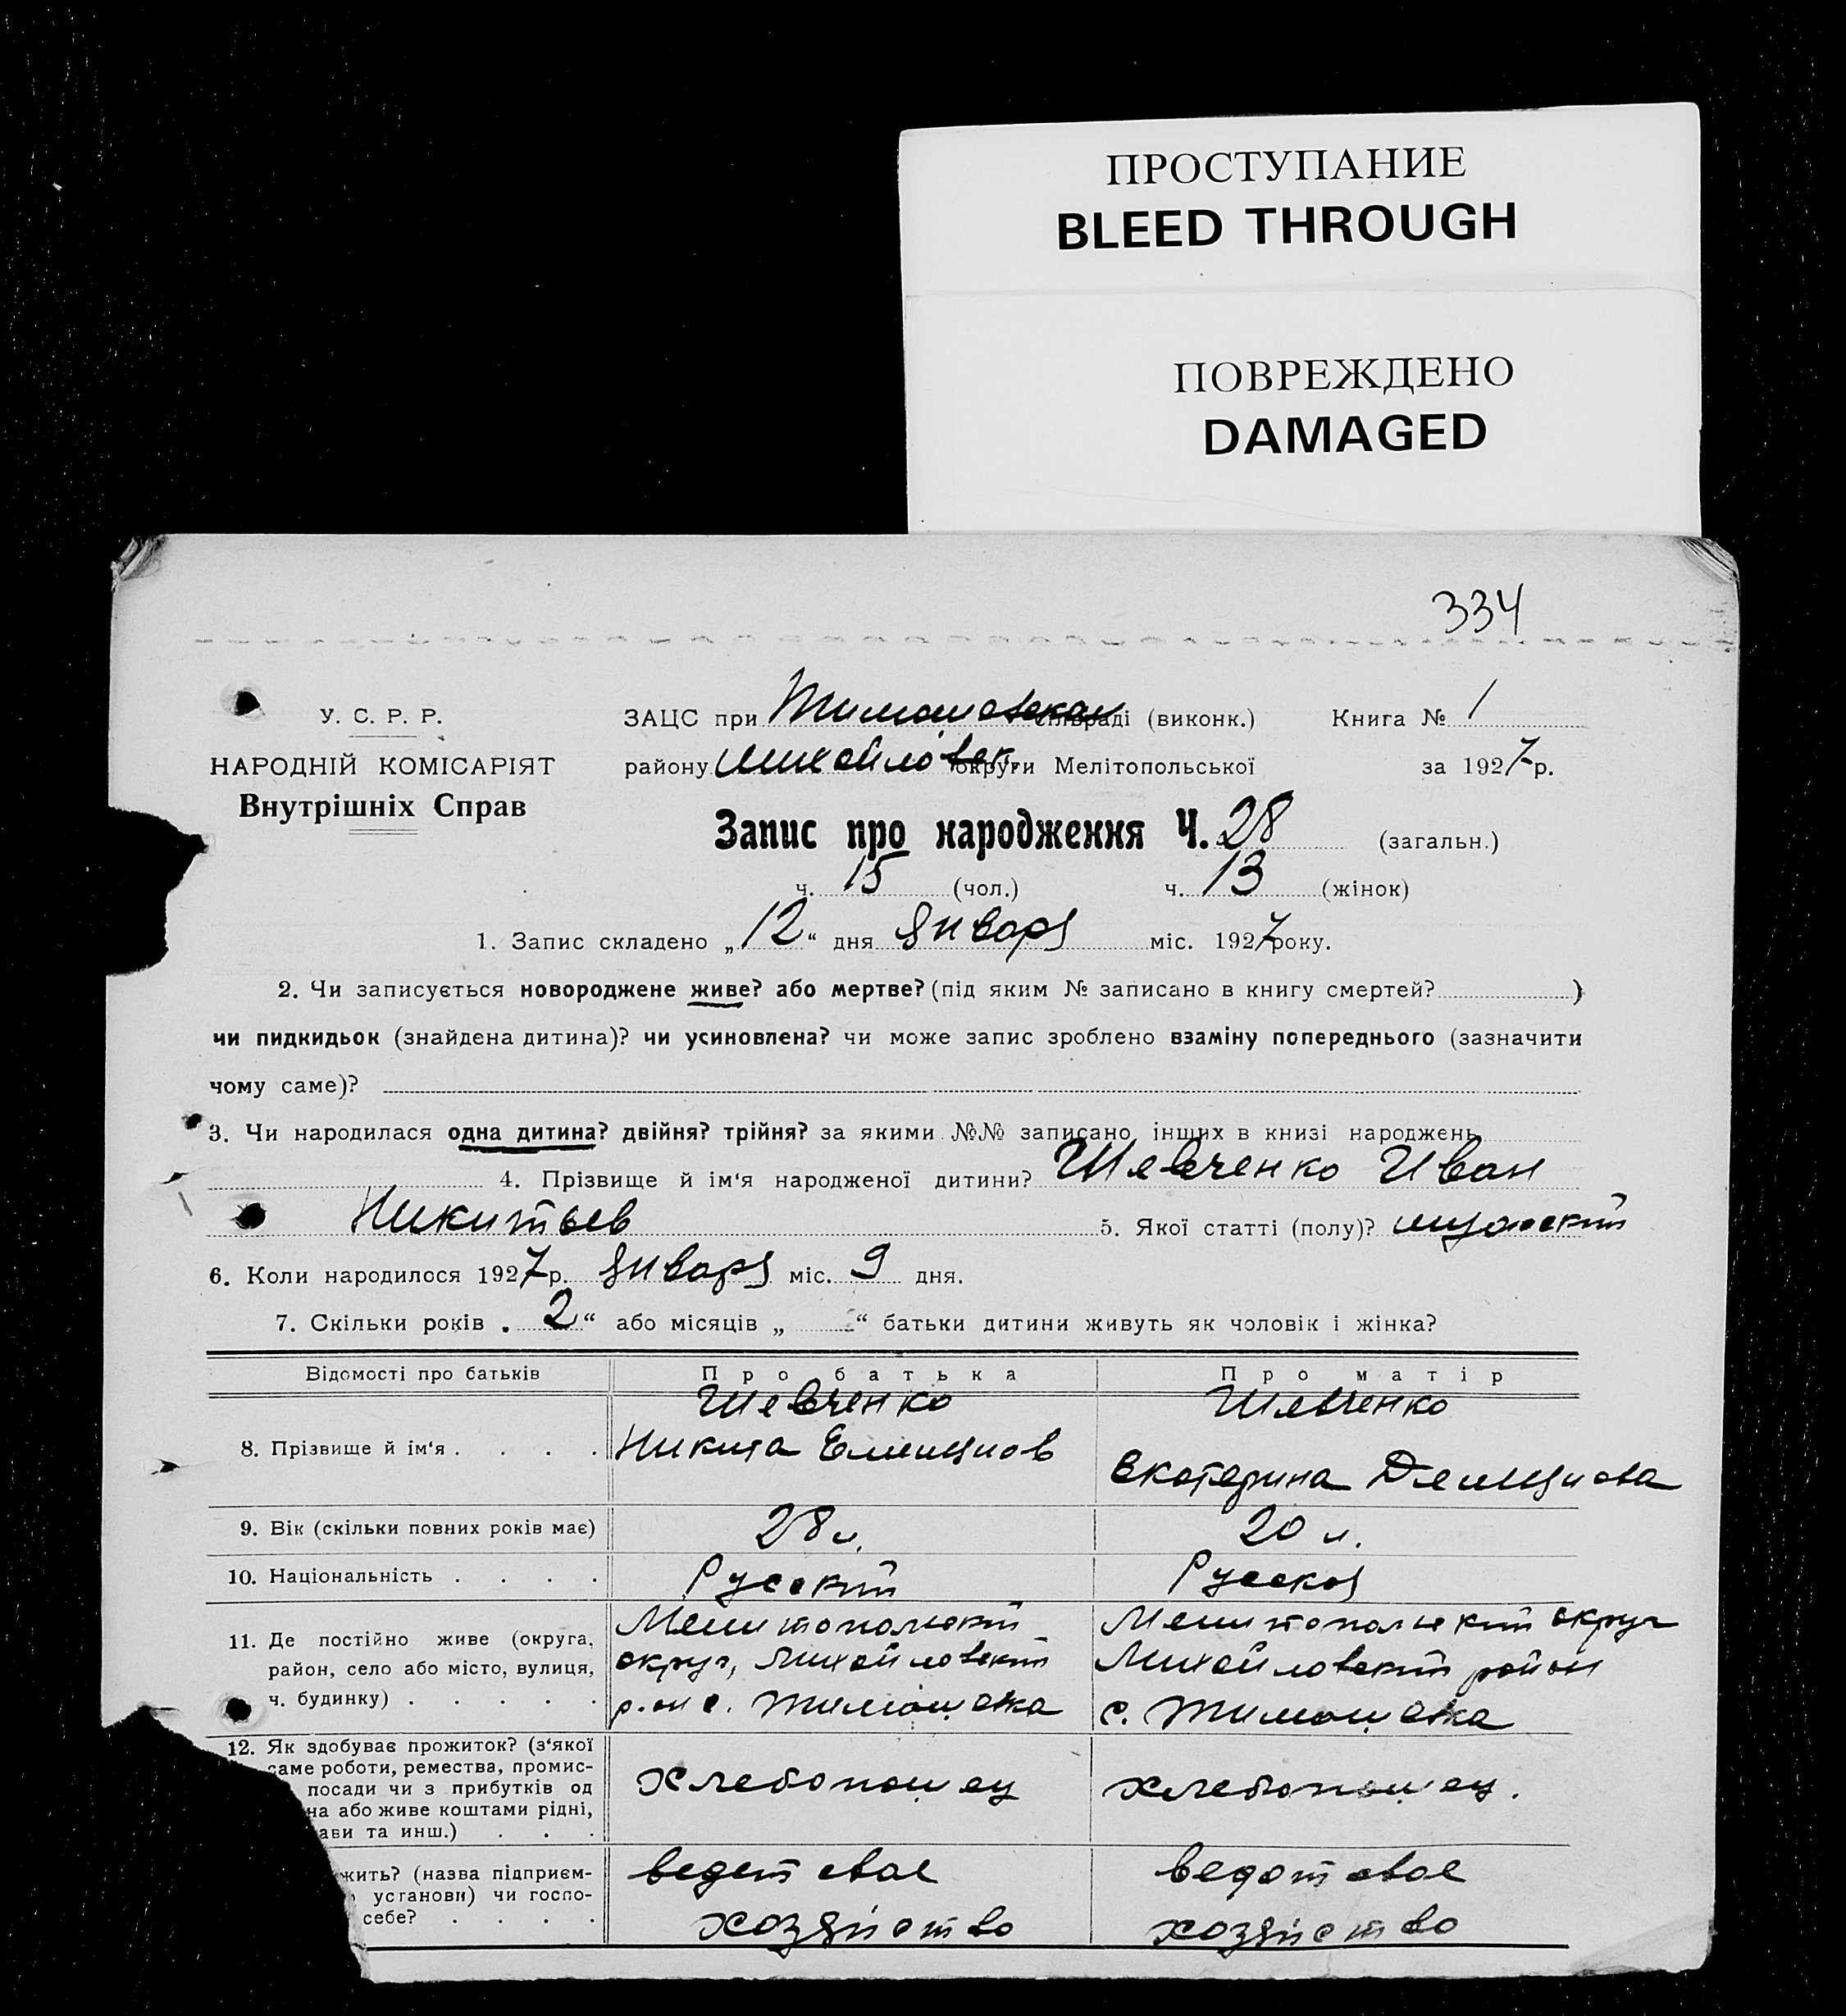 ПРОСТУПАНИЕ
BLEED THROUGH
ПОВРЕЖДЕНО
DAMAGED
334
У. С. Р. Р.
ЗАЦС при Тимошовской раді (виконк.) Книга № 1
НАРОДНІЙ КОМІСАРІЯТ
району Михайловск. округи Мелітопольської за 1927 р.
Внутрішніх Справ
Запис про народження Ч. 28 (загальн.)
ч. 15 (чол.) ч. 13 (жінок)
1. Запис складено „12“ дня Января міс. 1927 року.
2. Чи записується новороджене живе? або мертве? (під яким № записано в книгу смертей? )
чи пидкидьок (знайдена дитина)? чи усиновлена? чи може запис зроблено взаміну попереднього (зазначити
чому саме)?
3. Чи народилася одна дитина? двійня? трійня? за якими №№ записано інших в книзі народжень
4. Прізвище й ім‘я народженої дитини? Шевченко Иван
Никитьев 5. Якої статті (полу)? мужский
6. Коли народилося 1927 р. Января міс. 9 дня.
7. Скільки років „2“ або місяців „ “ батьки дитини живуть як чоловік і жінка?
Відомості про батьків Про батька Про матір
Шевченко Шевченко
8. Прізвище й ім‘я . . . . Никита Емельянов
Екатерина Демьянова
9. Вік (скільки повних років має) 28 л. 20 л.
10. Національність . . . . Русский Русская
11. Де постійно живе (округа, район, село або місто, вулиця, ч. будинку) . . . . .
Мелитопольский
округ, Михайловский
р-он с. Тимошовка
Мелитопольский округ
Михайловский район
с. Тимошовка
12. Як здобуває прожиток? (з‘якої
саме роботи, ремества, промис-
посади чи з прибутків од
на або живе коштами рідні,
ави та инш.) . . .
хлебопашец хлебопашец.
жить? (назва підприєм-
установи) чи госпо-
себе? . . . .
ведет свое ведет свое
хозяйство хозяйство